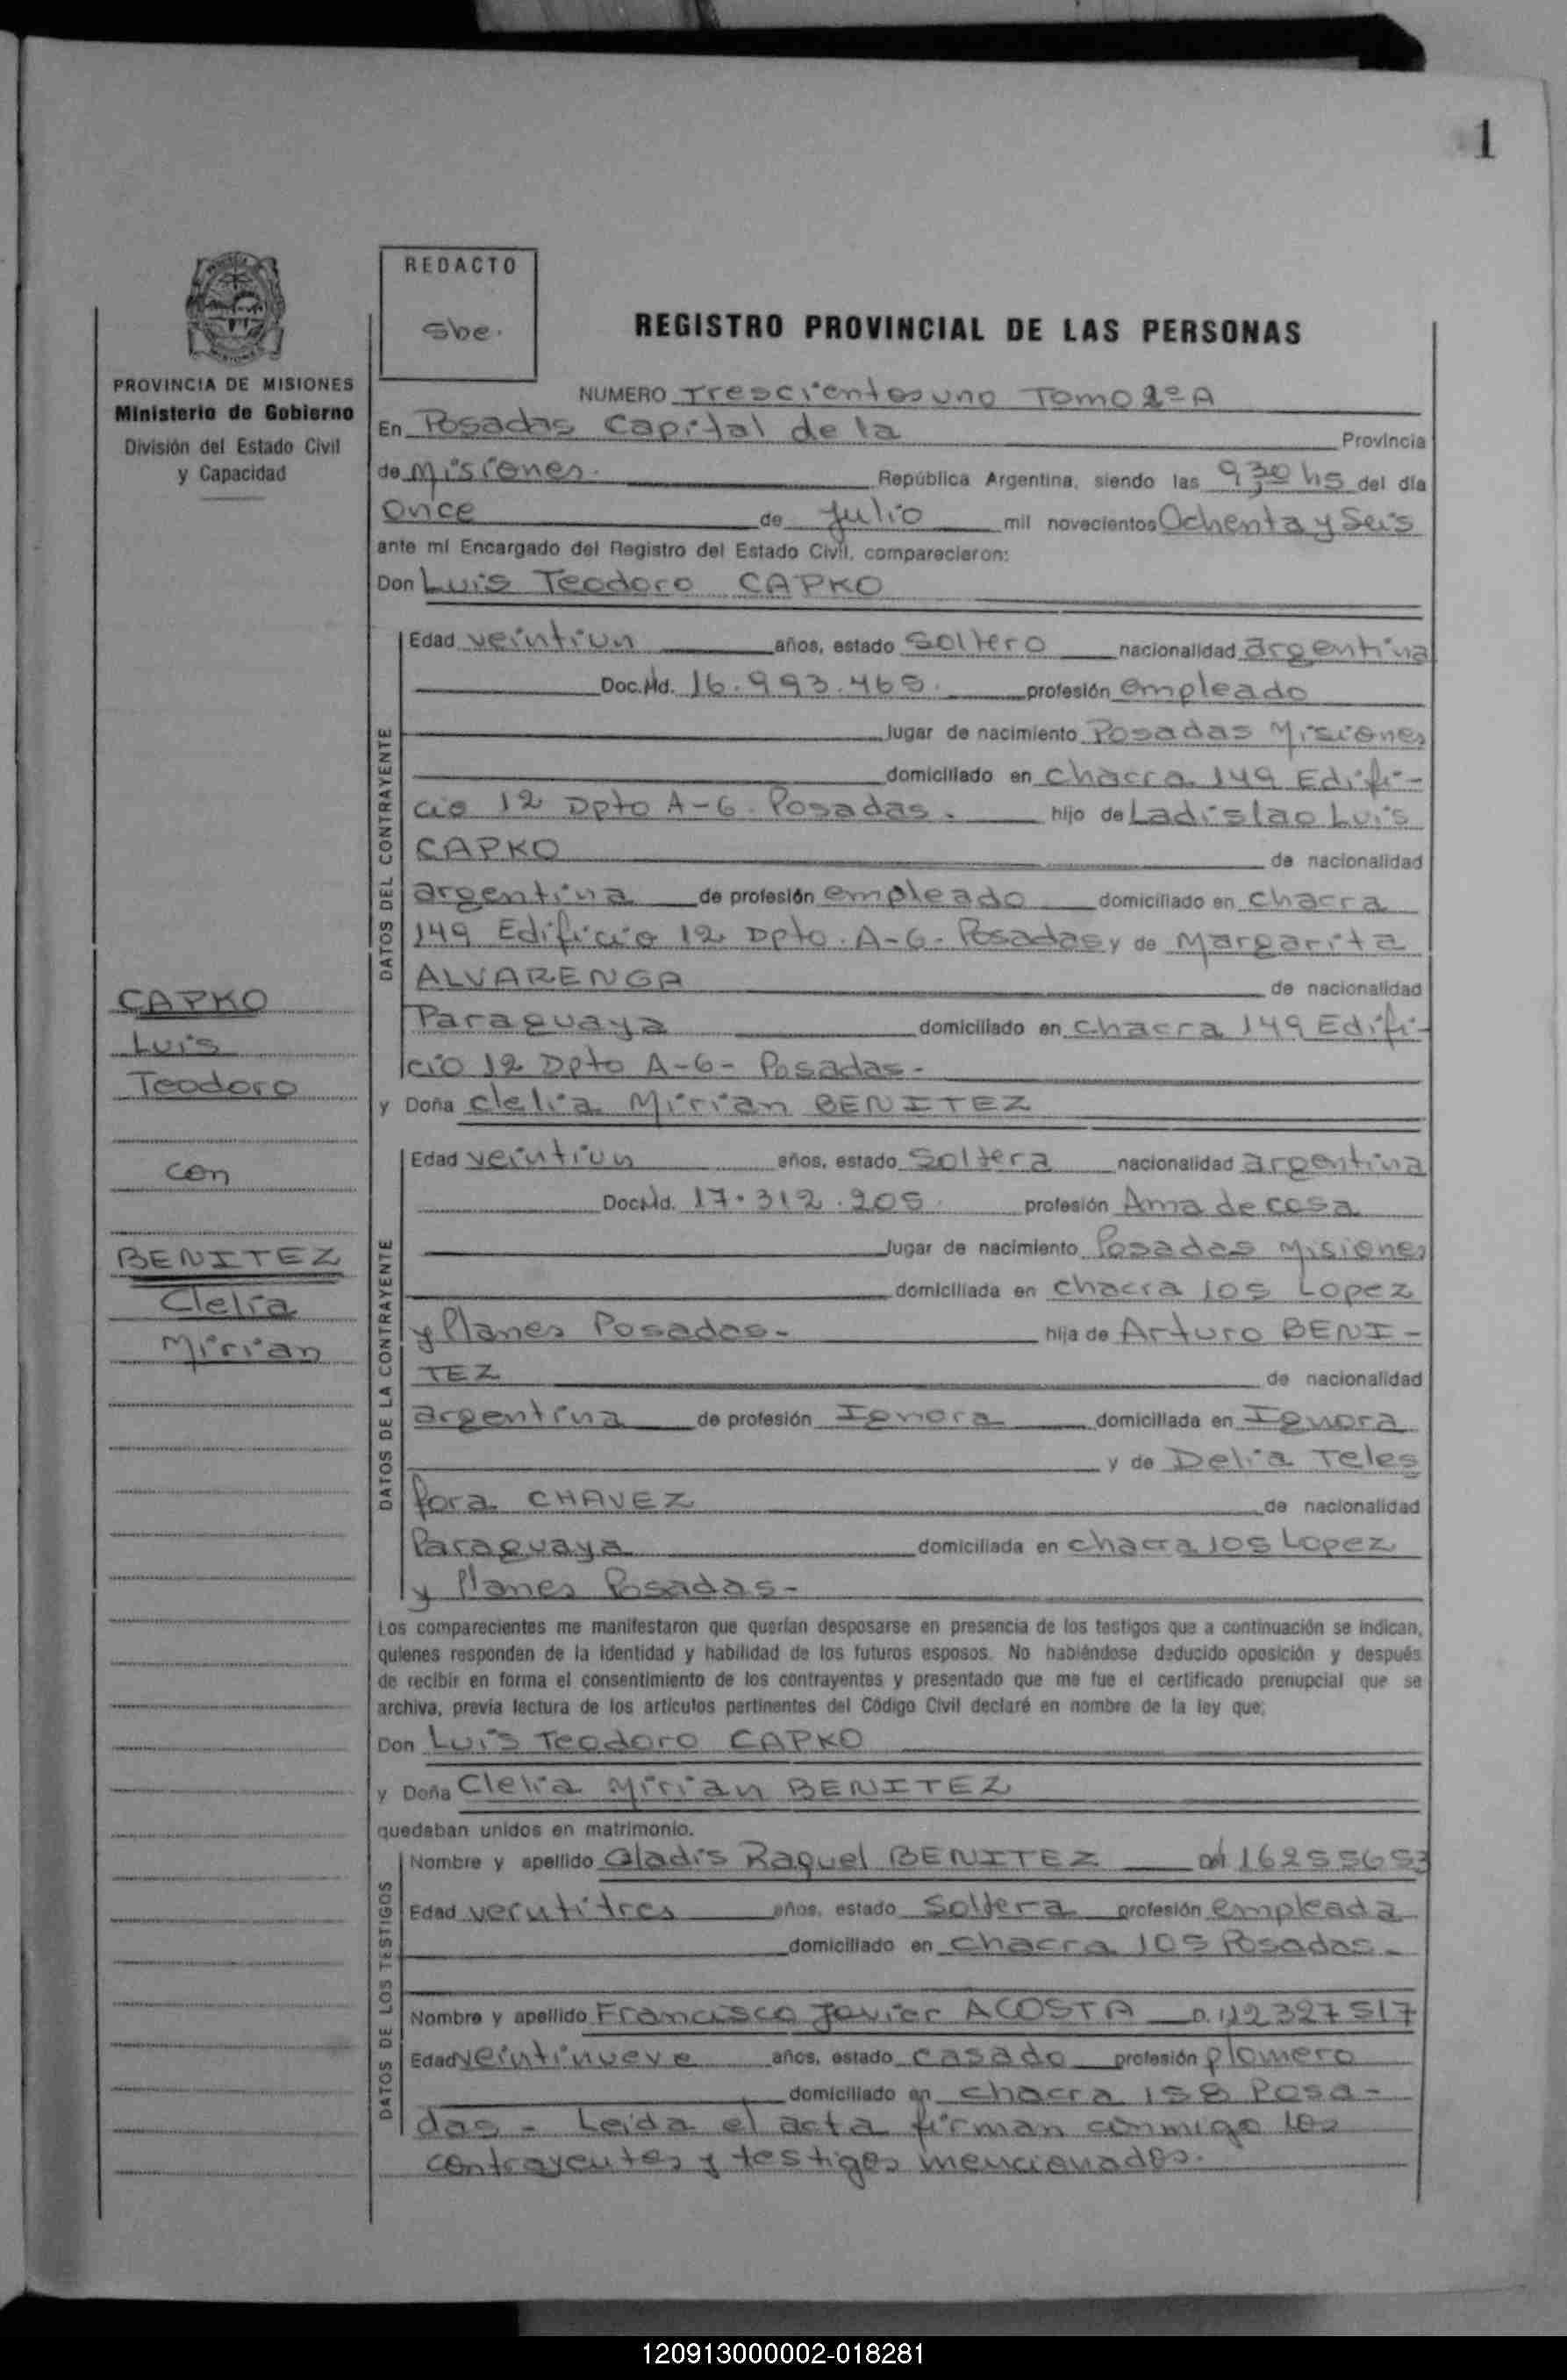 1
REDACTO
sbe.
REGISTRO PROVINCIAL DE LAS PERSONAS
PROVINCIA DE MISIONES
Ministerio de Gobierno
División del Estado Civil
y Capacidad
NUMERO Trescientos uno Tomo 2º A
En Posadas Capital de la Provincia
de Misiones. República Argentina, siendo las 9,30 hs del día
Once de Julio mil novecientos Ochenta y Seis
ante mí Encargado del Registro del Estado Civil, comparecieron:
Don Luis Teodoro CAPKO
DATOS DEL CONTRAYENTE
Edad veintiun años, estado Soltero nacionalidad argentina
Doc.Nd. 16.993.465. profesión empleado
lugar de nacimiento Posadas Misiones
domiciliado en chacra 149 Edifi-
cio 12 Dpto A-6. Posadas. hijo de Ladislao Luis
CAPKO de nacionalidad
argentina de profesión empleado domiciliado en chacra
149 Edificio 12 Dpto. A-6- Posadas y de Margarita
ALVARENGA de nacionalidad
Paraguaya domiciliado en chacra 149 Edifi-
cio 12 Dpto A-6- Posadas-
y Doña Clelia Mirian BENITEZ
CAPKO
Luis
Teodoro
con
BENITEZ
Clelia
Mirian
DATOS DE LA CONTRAYENTE
Edad veintiun años, estado Soltera nacionalidad argentina
Doc.Nd. 17.312.205. profesión Ama de casa
lugar de nacimiento Posadas Misiones
domiciliada en chacra 105 Lopez
y Planes Posadas- hija de Arturo BENI-
TEZ de nacionalidad
argentina de profesión Ignora domiciliada en Ignora
y de Delia Teles
fora CHAVEZ de nacionalidad
Paraguaya domiciliada en chacra 105 Lopez
y Planes Posadas-
Los comparecientes me manifestaron que querían desposarse en presencia de los testigos que a continuación se indican,
quienes responden de la identidad y habilidad de los futuros esposos. No habiéndose deducido oposición y después
de recibir en forma el consentimiento de los contrayentes y presentado que me fue el certificado prenupcial que se
archiva, previa lectura de los artículos pertinentes del Código Civil declaré en nombre de la ley que;
Don Luis Teodoro CAPKO
y Doña Clelia Mirian BENITEZ
quedaban unidos en matrimonio.
DATOS DE LOS TESTIGOS
Nombre y apellido Gladis Raquel BENITEZ 16255653
Edad veintitres años, estado Soltera profesión empleada
domiciliado en chacra 105 Posadas-
Nombre y apellido Francisco Javier ACOSTA 12327517
Edad veintinueve años, estado casado profesión plomero
domiciliado en chacra 158 Posa-
das- Leida el acta firman conmigo los
contrayentes y testigos mencionados.
120913000002-018281